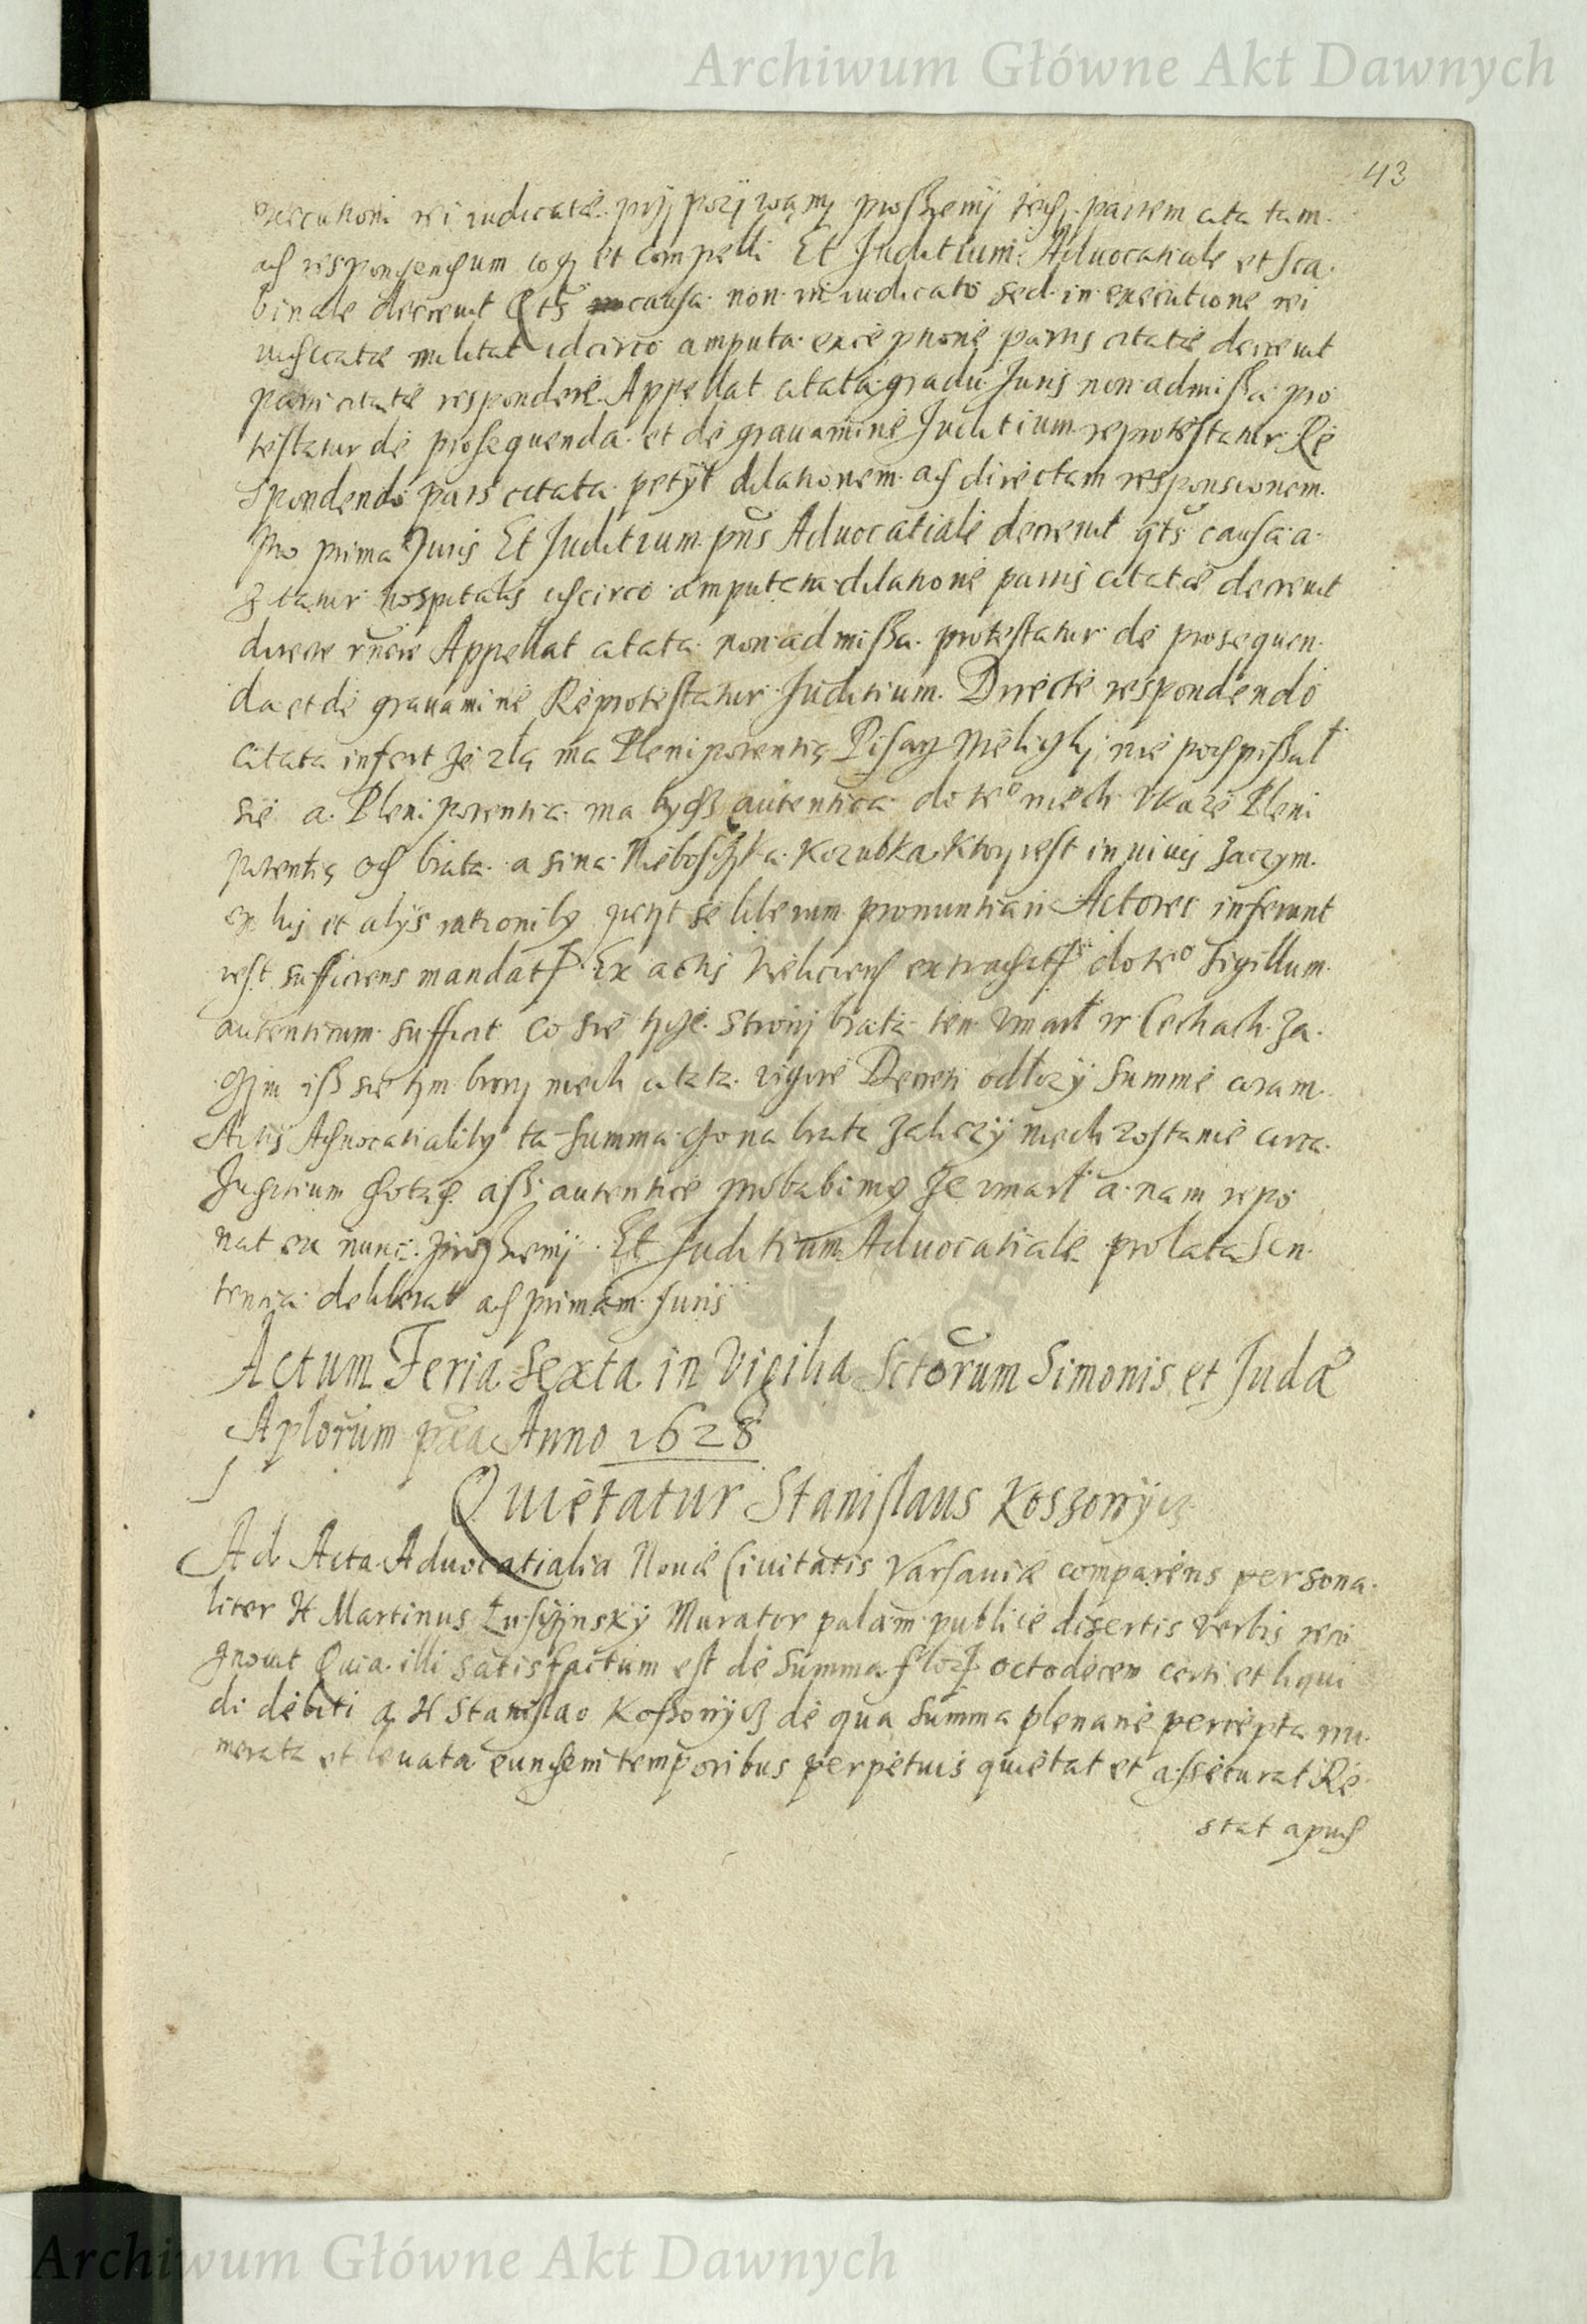 Archiwum Główne Akt Dawnych
43
executioni rei iudicatæ przÿpozÿwamÿ proszemÿ partem citatam
ad respondendum cogi et compelli Et Juditium Aduocatiale et Sca-
binale decreuit causa non in iudicato sed in executione rei
iudicatæ militat idcirco amputa exceptione partis citatæ decreuit
parti citatæ respondere Appellat citata gradu Juris non admissa pro
testatur de prosequenda et de grauamine Juditium reprotestatur Re
spondendo pars citata petÿt dilationem ad directam responsionem
pro prima Juris Et Juditium pñs Aduocatiale decreuit qts causa a-
gitatur hospitalis idcirco amputata dilatione partis citatæ decreuit
directe Appellat citata non admissa protestatur de prosequen-
da et de grauamine Reprotestatur Juditium Directe respondendo
citata infert Je zlą ma Plenipotentią Pisarz nie podpissał
sie a Plenipotentia ma bydz autentica do te° niech Vkaze Pleni
potentią od brata a sina Nieboszczyka Kozubka ktory iest in viuis zaczym
ex his et alÿs rationib9 petÿt se liberum pronuntiari Actores inferunt
iest sufficiens mandat Ex actis do te° Sigillum
autenticum sufficit co sie tycze Strony brata ten vmarł w Cechach Za-
czym isz sie tym broni niech citata vigore Decreti odłozÿ Summe coram
Actis Aduocatialib9 ta Summa co na brata zalezÿ niech zostanie circa
Juditium dotąd asz autentice probabim9 Je vmarł a nam repo
nat ex nunc proszemÿ Et Juditium Aduocatiale prolata Sen-
tentia deliberat ad primam Juris
Actum Feria Sexta in Vigilia Sctorum Simonis et Judæ
Aplorum Anno 1628
Quietatur Stanislaus Koszorrÿcz
Ad Acta Aduocatialia Nouæ Ciuitatis Varsauiæ comparens persona-
liter H Martinus Murator palam publice disertis verbis reco
gnouit Quia illi satisfactum est de Summa flor octodecem certi et liqui
di debiti a H Stanislao Kossorrÿcz de qua Summa plenarie percepta nu-
merata et leuata eundem temporibus perpetuis quietat et assecurat Re
stat apud
Archiwum Główne Akt Dawnych